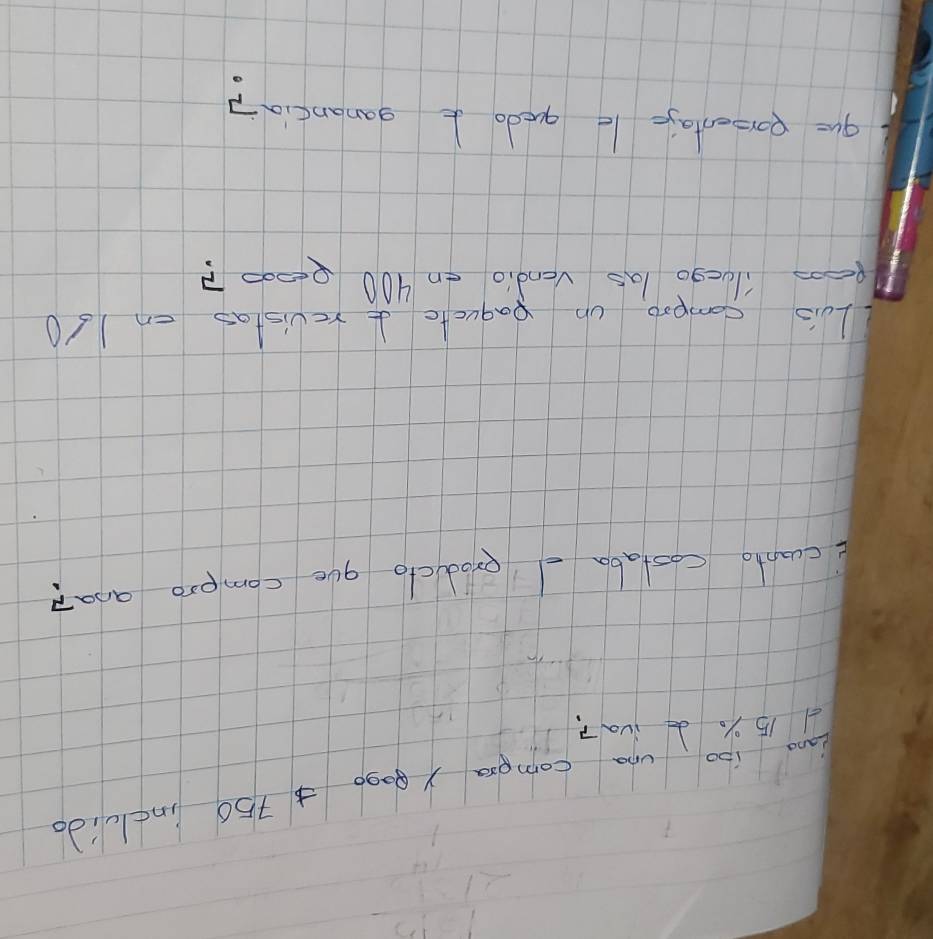 ¿ana iso una compra y pago $ 750 incluido
el 15% de iva?
¿cuanto costaba el producto que compro ana?
¿Luis compro un paquete de revistas en 160
pesos iluego las vendio en 400 pesos?
¿que porsentaje le quedo de ganancia?